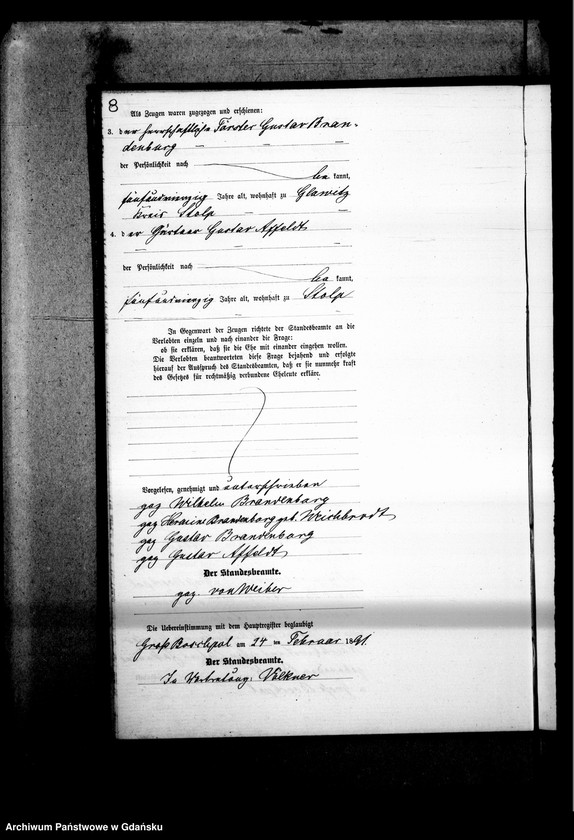 8
Als Zeugen waren zugezogen und erschienen:
3. der herrschaftliche Förster Gustav Bran-
denburg
der Persönlichkeit nach
be kannt,
fünfundvierzig Jahre alt, wohnhaft zu Glawitz
Kreis Stolp
4. der Gustav Affeldt
der Persönlichkeit nach
be kannt,
fünfundvierzig Jahre alt, wohnhaft zu Stolp
In Gegenwart der Zeugen richtete der Standesbeamte an die
Verlobten einzeln und nach einander die Frage:
ob sie erklären, daß sie die Ehe mit einander eingehen wollen.
Die Verlobten beantworteten diese Frage bejahend und erfolgte
hierauf der Ausspruch des Standesbeamten, daß er sie nunmehr kraft
des Gesetzes für rechtmäßig verbundene Eheleute erkläre.
Vorgelesen, genehmigt und unterschrieben
gez Wilhelm Brandenburg
gez Brandenburg geb. Weichbrodt
gez Gustav Brandenburg
gez Gustav Affeldt
Der Standesbeamte.
gez. von Weiher
Die Uebereinstimmung mit dem Hauptregister beglaubigt
Groß Boschpol am 24 ten Februar 1891.
Der Standesbeamte.
In Vertretung: Völkner
Archiwum Państwowe w Gdańsku